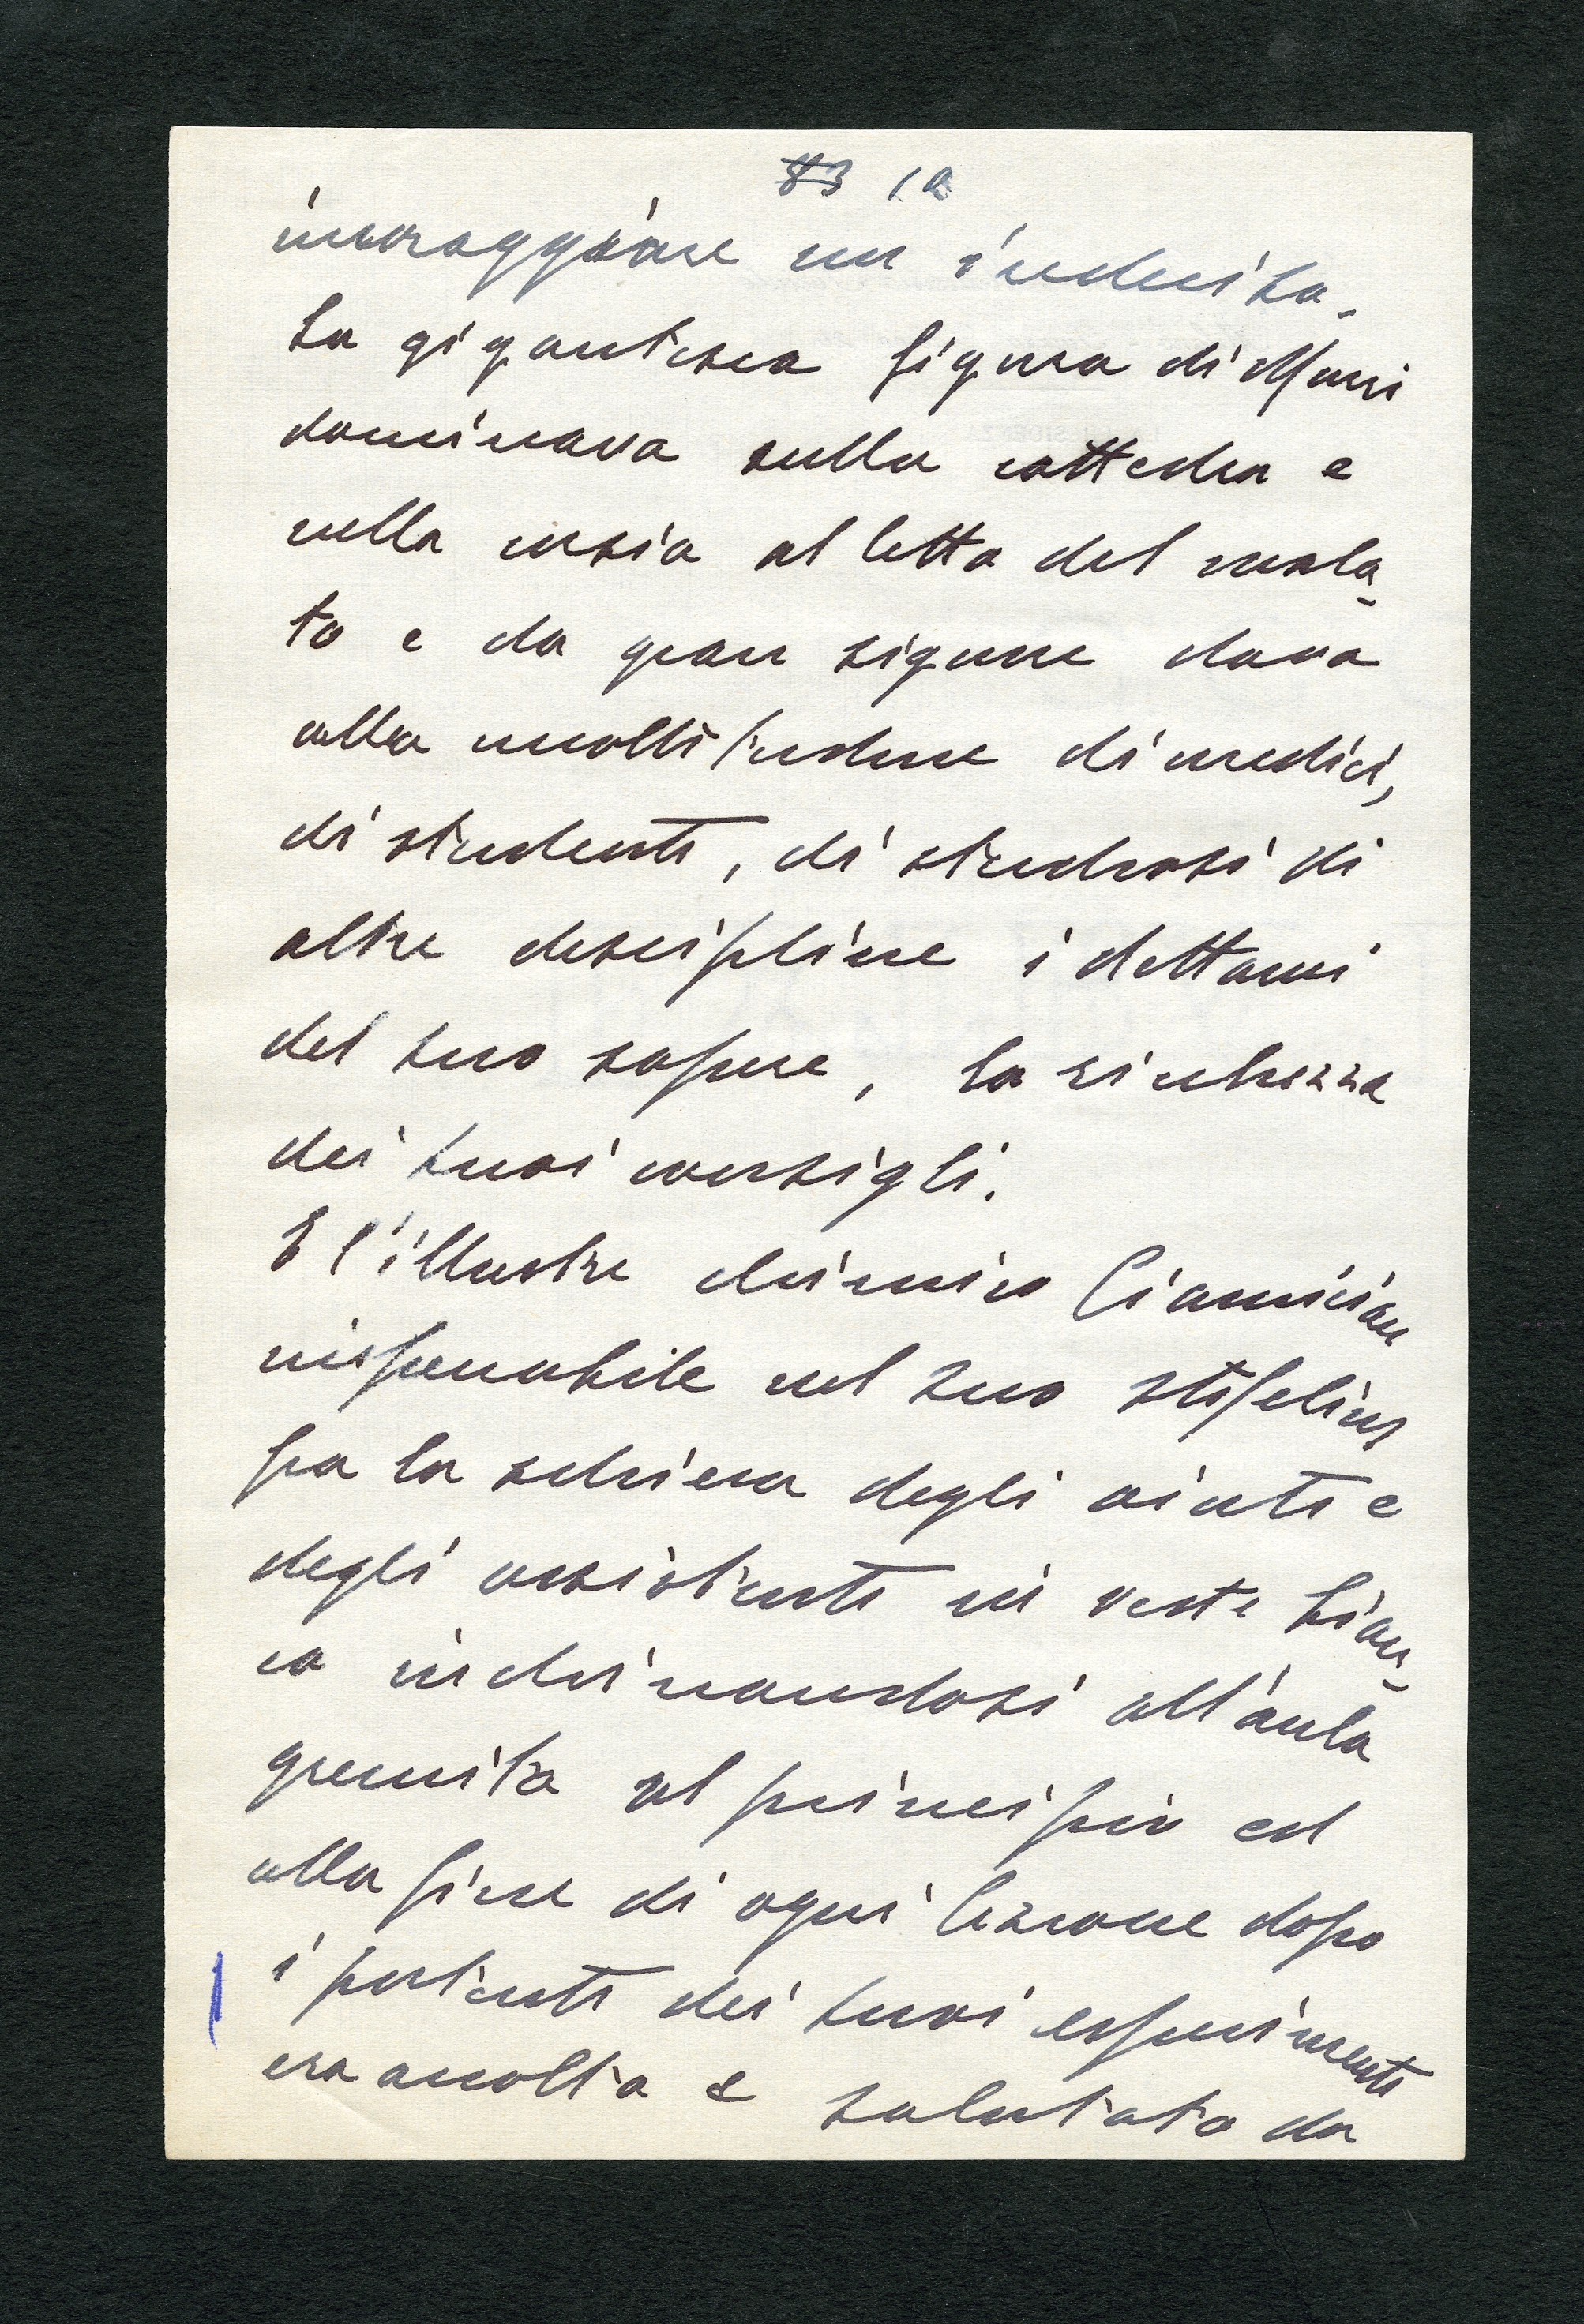 83 10
incoraggiare un indeciso.
La gigantesca figura di Murri
dominava sulla cattedra e
nella corsia al letto del mala-
to e da gran signore dava
alla moltitudine di medici,
di studenti, di studiosi di
altre discipline i dettami
del suo sapere, la ricchezza
dei suoi consigli.
E l'illustre chimico Ciamician
inappuntabile nel suo stifelius
fra la schiera degli aiuti e
degli assistenti in veste bian-
ca inchinandosi all'aula
gremita al principio ed
alla fine di ogni lezione dopo
i portenti dei suoi esperimenti
era accolto e salutato da